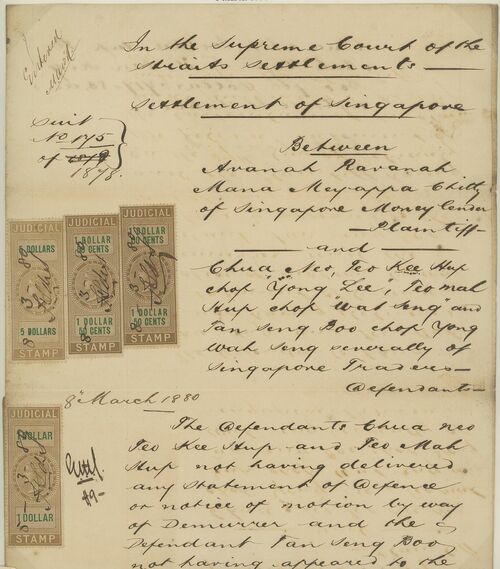 Entered
In the Supreme Court of the
Straits Settlements
Settlement of Singapore
Suit
No 175
of 1879
1878.
Between
Avanah Ravanah
Mana Meyappa Chitty
of Singapore Money lender
Plaintiff
and
Chua Neo, Teo Kee Hup
chop "Yong Lee", Teo Mah
Hup chop "Wat Seng" and
Tan Seng Boo chop Yong
Wah Seng severally of
Singapore Traders
Defendants
JUDICIAL
5 DOLLARS
8 3 80
5 DOLLARS
STAMP
JUDICIAL
1 DOLLAR
50 CENTS
8 3 80
1 DOLLAR
50 CENTS
STAMP
JUDICIAL
1 DOLLAR
50 CENTS
8 3 80
1 DOLLAR
50 CENTS
STAMP
8th March 1880
The Defendants Chua neo
Teo Kee Hup and Teo Mah
Hup not having delivered
any Statement of Defence
or notice of motion by way
of Demurrer and the
Defendant Tan Seng Boo
not having appeared to the
JUDICIAL
1 DOLLAR
8 3 80
1 DOLLAR
STAMP